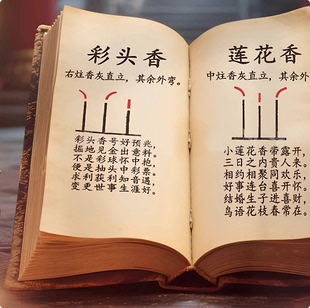 彩头香
右炷香灰直立，其余外弯。
彩头香号好预兆，
掘地见金出意料。
不是彩球怀中抱，
便是抽头中彩票。
求利获利知音遇，
变更世事生涯好。
莲花香
中炷香灰直立，其余外弯。
小莲花香带露开，
三日之内贵人来。
相约相聚同欢乐，
好事连台喜开怀。
结婚生子进喜财，
鸟语花枝春常在。